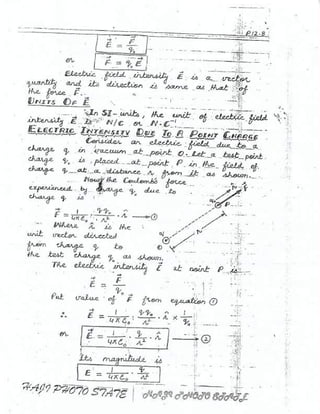 P12-8
E⃗ = F⃗ / q₀
or F⃗ = q₀ E⃗
Electric field intensity E⃗ is a vector
quantity and its direction is same as that of
the force F⃗.
UNITS OF E
In SI-units, the unit of electric field
intensity E⃗ is N/C or N.C⁻¹.
ELECTRIC INTENSITY DUE TO A POINT CHARGE
Consider an electric field due to a
charge q in vacuum at point O. Let a test point
charge q₀ is placed at point P in the field of
charge q at a distance r from it as shown.
Now the Coulomb's force
experienced by charge q₀ due to
charge q is
F⃗ = 1/4πε₀ · qq₀/r² · r̂ → ①
Where r̂ is the
unit vector directed
from charge q to
the test charge q₀ as shown.
The electric intensity E⃗ at point P is
E⃗ = F⃗ / q₀
Put value of F⃗ from equation ①
∴ E⃗ = 1/4πε₀ · qq₀/r² · r̂ × 1/q₀
or E⃗ = 1/4πε₀ · q/r² · r̂ → ②
Its magnitude is
E = 1/4πε₀ q/r²
HAJI PHOTO STATE